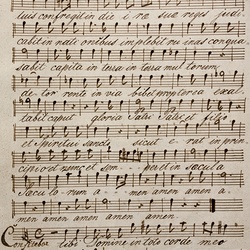 tuis confregit in die i rae suae reges judi
cabit in nationibus implebit ruinas conqua
sabit capita in terra in terra multorum
de tor rente in via bibet propterea exal
tabit caput gloria Patri Patri et filio
et Spiritui sancto sicut e rat in prin
cipio et nunc et sem per et in saecula
saeculo rum a men amen amen a
men amen amen amen
Confitebor tibi Domine in toto corde meo